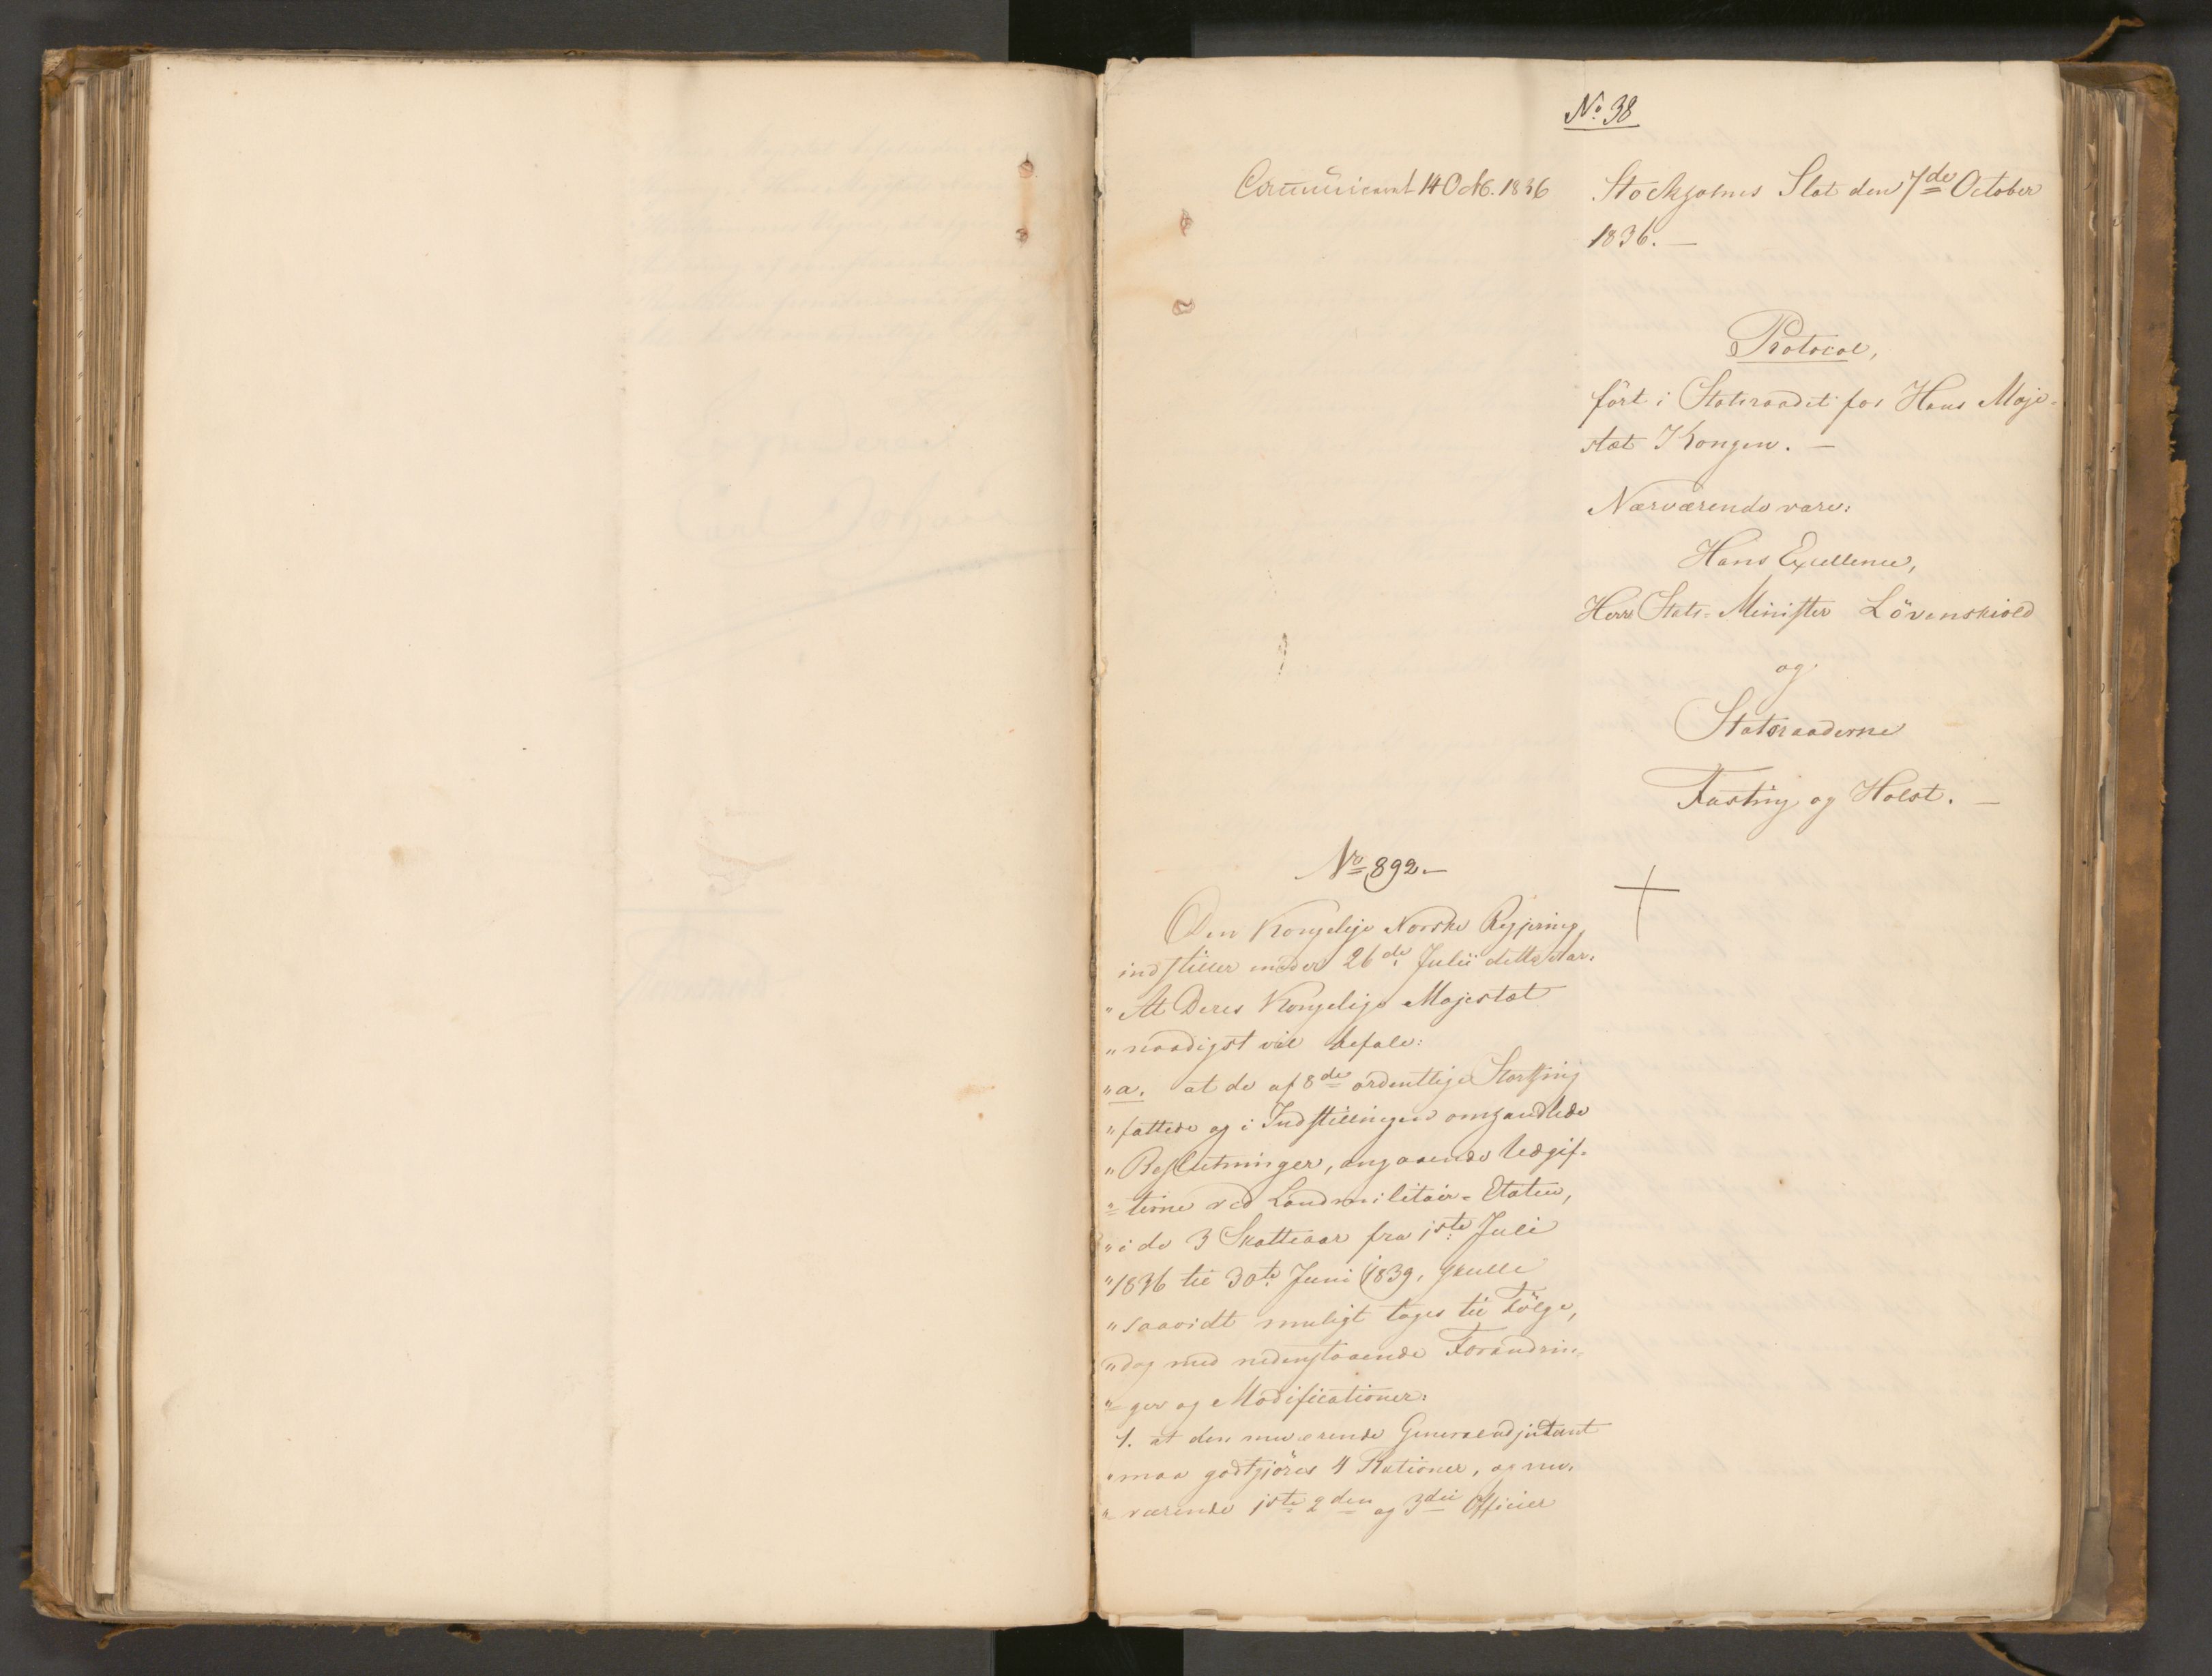 No. 38
Communiceret 14 Octb. 1836
Stockholms Slot den 7de October
1836. —
Protocol,
fört i Statsraadet for Hans Maje-
stæt Kongen. —
Nærværende vare:
Hans Excellence,
Herr Stats-Minister Lövenskiold
og
Statsraaderne
Fasting og Holst. —
No 892.—
Den Kongelige Norske Regjering
indstiller under 26de Julii dette Aar.
"At Deres Kongelige Majestæt
"naadigst vil befale:
"a. at de af 8de ordentlige Storthing
"fattede og i Indstillingen omhandlede
"Beslutninger, angaaende Udgif-
"terne ved Landmilitair-Etaten,
"i de 3 Skatteaar fra 1ste Juli
"1836 til 30te Juni 1839, skulle
"saavidt muligt tages til Fölge,
"dog med nedenstaaende Forandrin-
"ger og Modificationer:
1. at den nuværende Generaladjutant
"maa godtgjöres 4 Rationer, og nu-
"værende 1ste 2den og 3die Officier